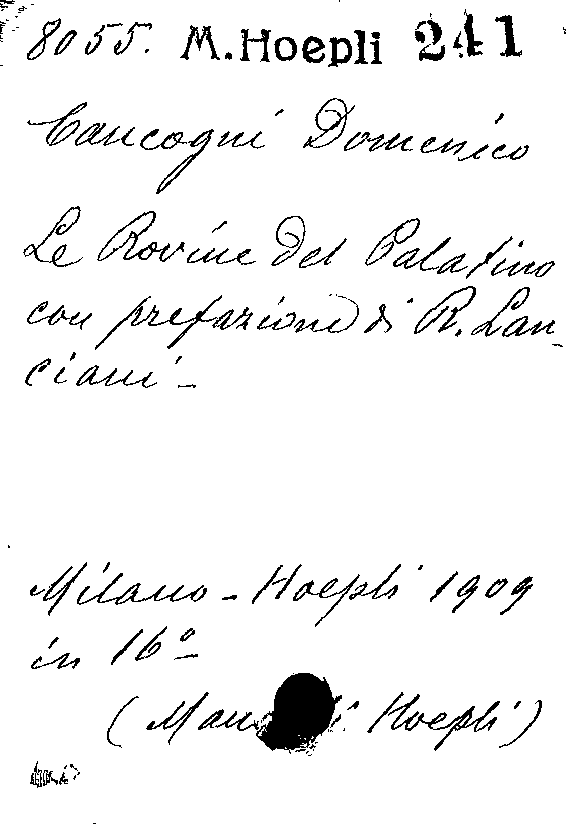 8055. M. Hoepli 241
Cancogni Domenico
Le Rovine del Palatino
con prefazione di R. Lan-
ciani -
Milano - Hoepli 1909
in 16°
( Hoepli)